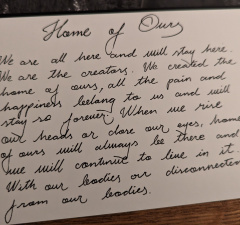 Home of Ours
We are all here and will stay here.
We are the creators. We created the
home of ours, all the pain and
happiness belong to us and will
stay so forever. When we rise
our heads or close our eyes, home
of ours will always be there and
we will continue to live in it
With our bodies or disconnected
from our bodies.